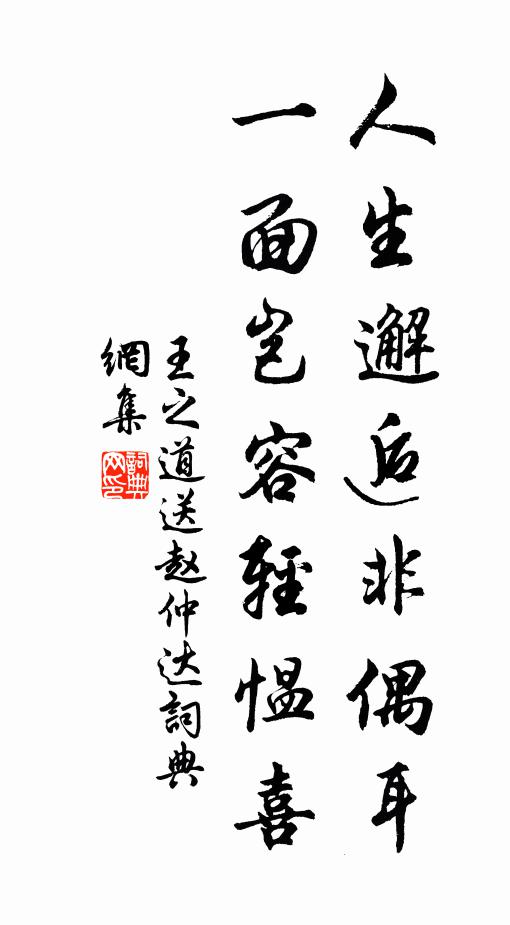 人生邂逅非偶耳
一面岂容輕愠喜
王之道送赵仲达詞典
網集
詞典
网印